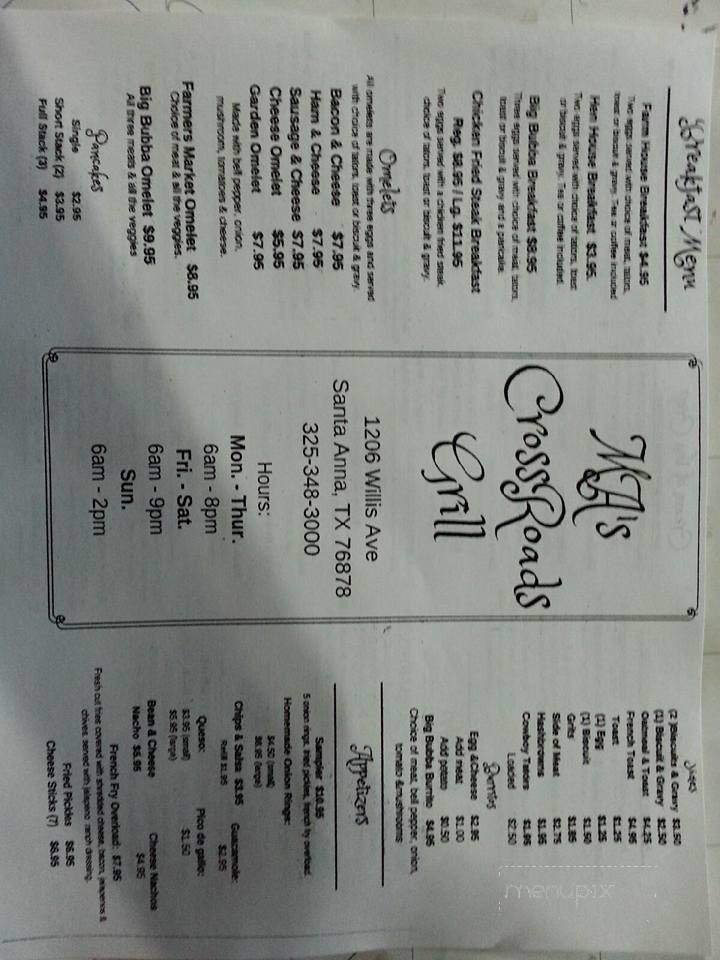 Breakfast Menu
Farm House Breakfast $4.95
Two eggs served with choice of meat, tators,
toast or biscuit & gravy. Tea or coffee included
Hen House Breakfast $3.95
Two eggs served with choice of tators, toast
or biscuit & gravy. Tea or coffee included.
Big Bubba Breakfast $9.95
Three eggs served with choice of meat, tators,
toast or biscuit & gravy and a pancake.
Chicken Fried Steak Breakfast
Reg. $8.95 / Lg. $11.95
Two eggs served with a chicken fried steak,
choice of tators, toast or biscuit & gravy.
Omelets
All omelets are made with three eggs and served
with choice of tators, toast or biscuit & gravy.
Bacon & Cheese $7.95
Ham & Cheese $7.95
Sausage & Cheese $7.95
Cheese Omelet $5.95
Garden Omelet $7.95
Made with bell pepper, onion,
mushroom, tomatoes & cheese.
Farmers Market Omelet $8.95
Choice of meat & all the veggies.
Big Bubba Omelet $9.95
All three meats & all the veggies
Pancakes
Single $2.95
Short Stack (2) $3.95
Full Stack (3) $4.95
MA's
CrossRoads
Grill
1206 Willis Ave
Santa Anna, TX 76878
325-348-3000
Hours:
Mon. - Thur.
6am - 8pm
Fri. - Sat.
6am - 9pm
Sun.
6am - 2pm
Sides
(2) Biscuits & Gravy $3.50
(1) Biscuit & Gravy $2.50
Oatmeal & Toast $4.25
French Toast $4.95
Toast $1.25
(1) Egg $1.25
(1) Biscuit $1.50
Grits $1.95
Side of Meat $2.75
Hashbrowns $1.95
Cowboy Tators $1.95
Loaded $2.50
Burritos
Egg & Cheese $2.95
Add meat $1.00
Add potato $0.50
Big Bubba Burrito $4.95
Choice of meat, bell pepper, onion,
tomato & mushrooms
Appetizers
Sampler $10.95
5 onion rings, fried pickles, french fry overload.
Homemade Onion Rings:
$4.50 (small)
$6.95 (large)
Chips & Salsa $3.95 Guacamole:
Refill $1.95 $2.95
Queso: Pico de gallo:
$3.95 (small) $1.50
$5.95 (large)
Bean & Cheese Cheese Nachos
Nacho $5.95 $4.95
French Fry Overload: $7.95
Fresh cut fries covered with shredded cheese, bacon, jalapenos &
chives, served with jalapeno ranch dressing.
Fried Pickles $6.95
Cheese Sticks (7) $6.95
menupix